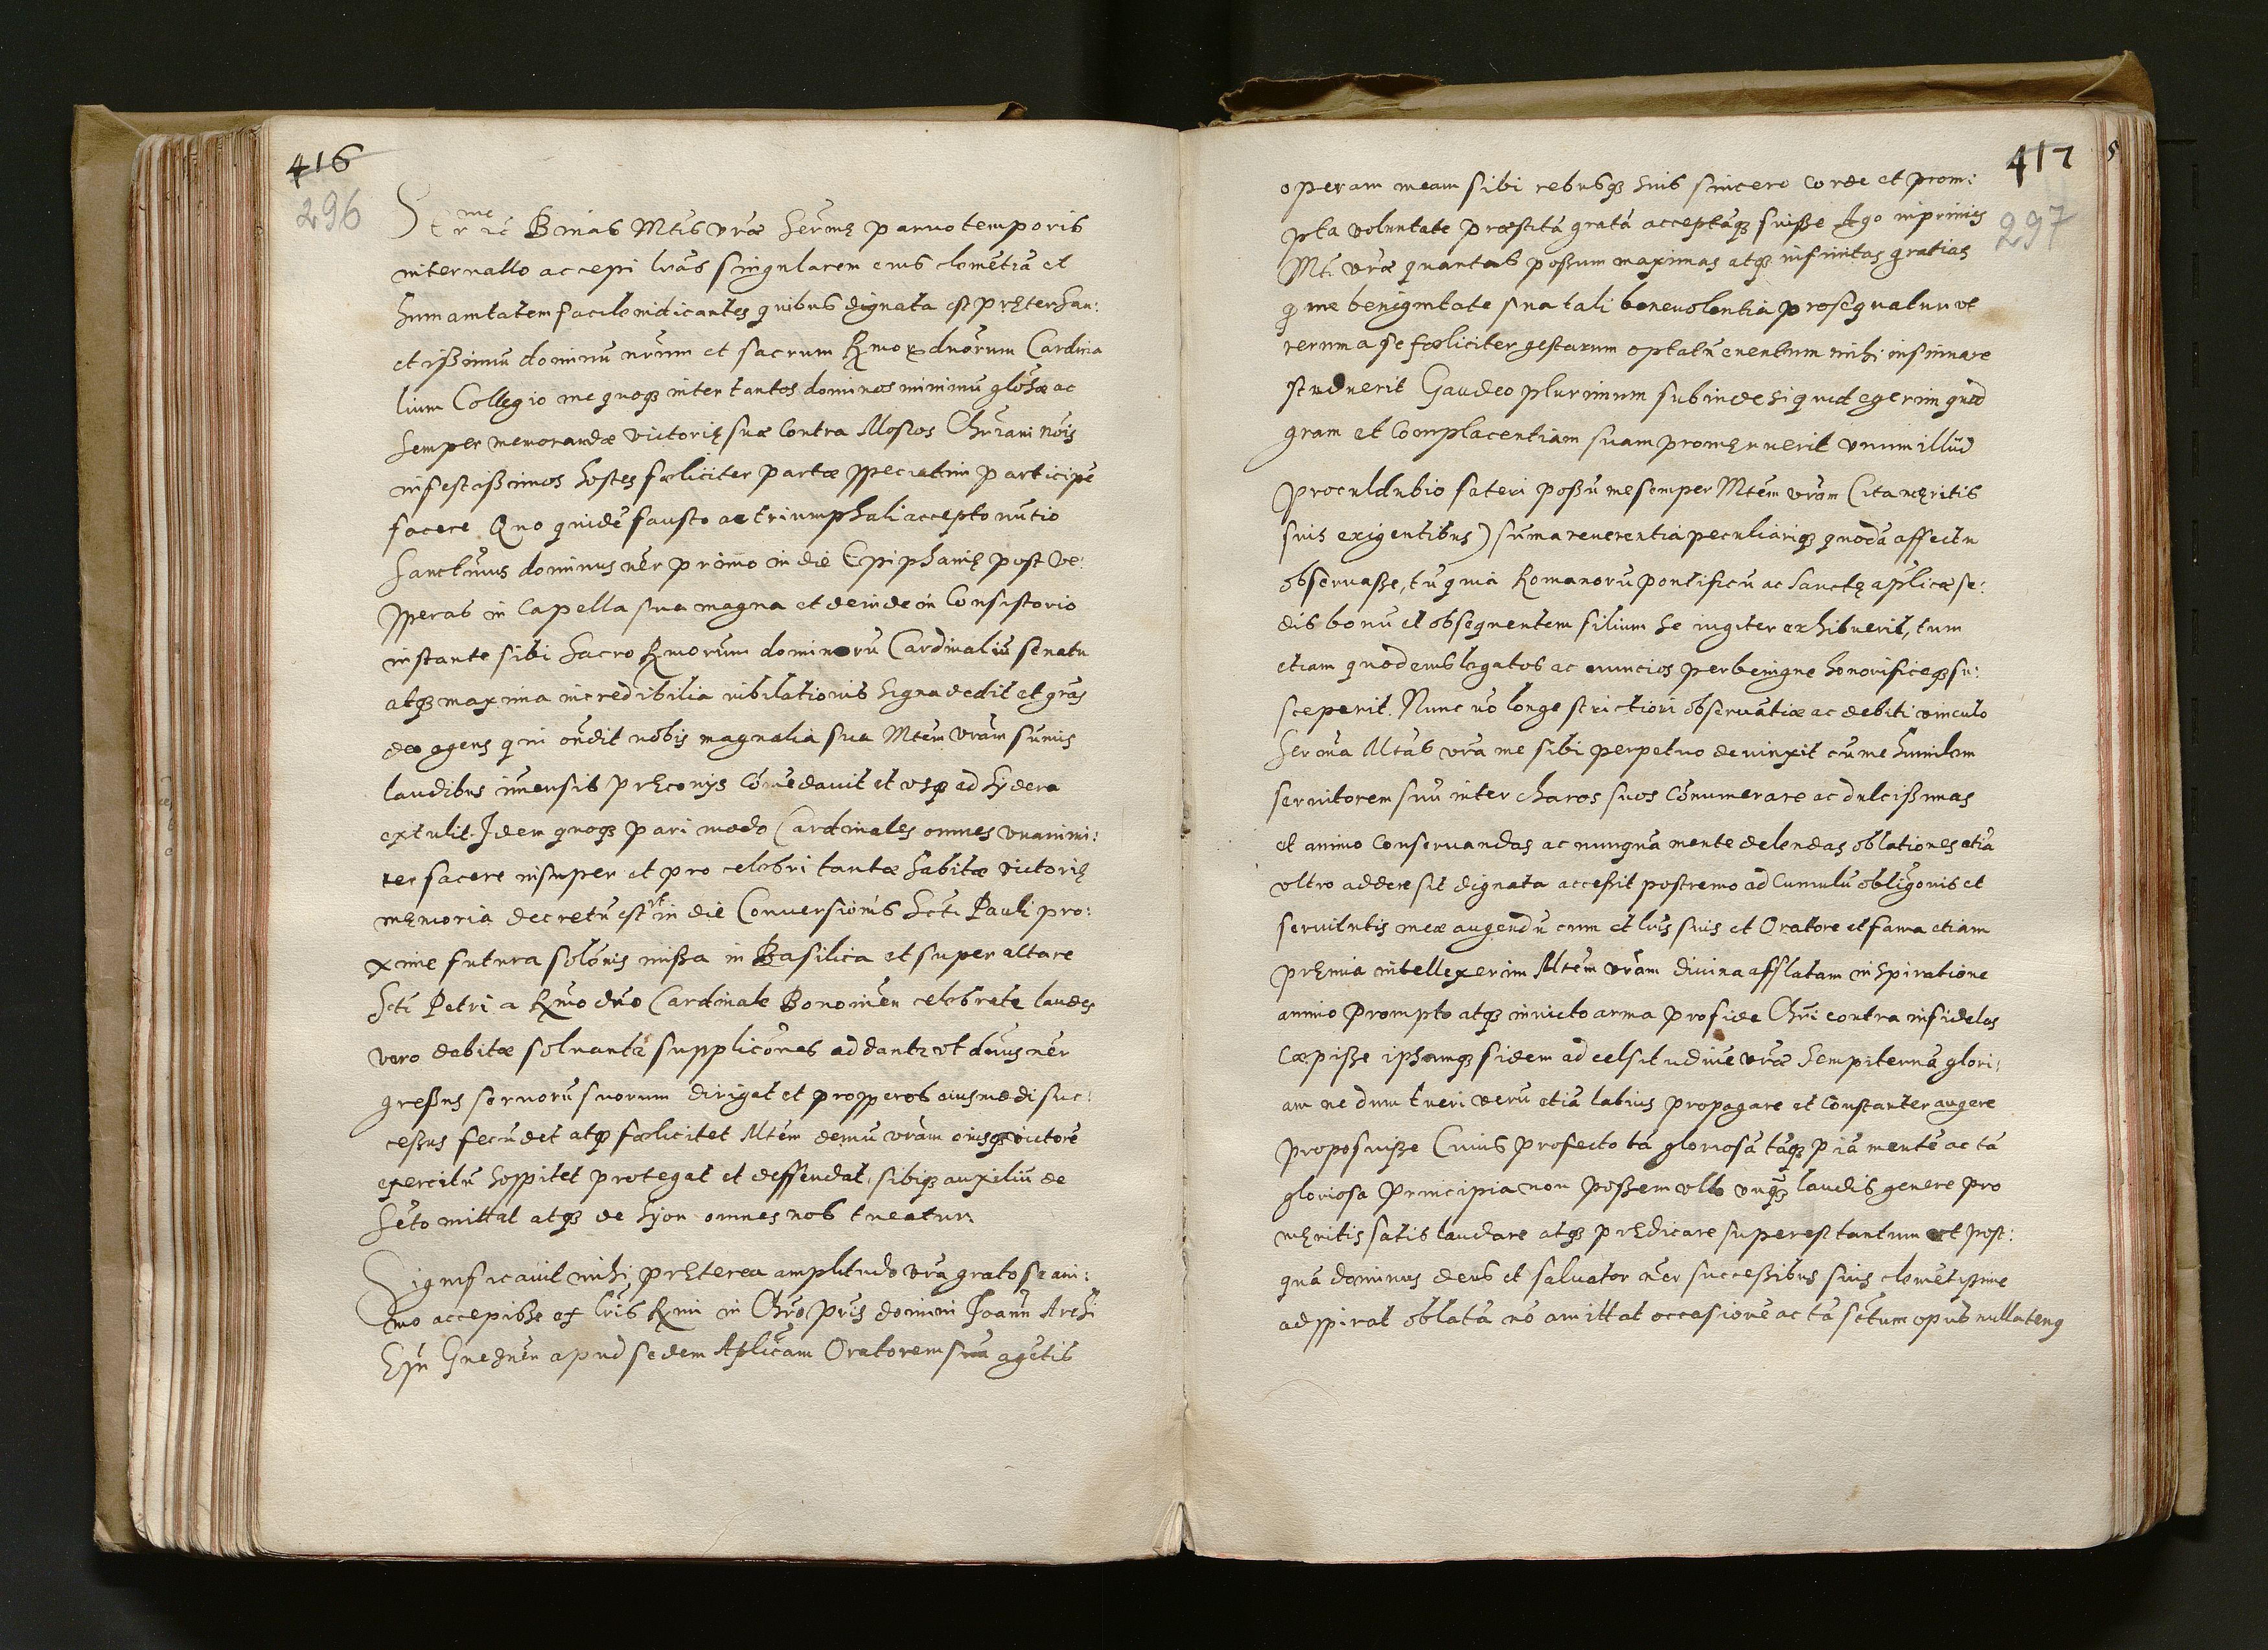 416
296
Ser^me ic Binas Mtis vrae Sermę paruo temporis
interuallo accepi lras singularem eius clemētiā et
humanitatem facile indicantes quibus dignata est pręter San:
ctissimū dominū nrum et sacrum Rmorx dnorum Cardina
lium Collegio me quoqȝ inter tantos dominos minimū glosae ac
semper memorandae victorię suae contra Moscos Chrīani nōis
infestissimos hostes foeliciter partae speciatim participē
facere Quo quidē fausto ac triumphali accepto nūtio
Sanctmus dominus nēr primo in die Epiphanię post ve:
speras in Capella sua magna et deinde in Consistorio
instante sibi Sacro Rmorum dominorū Cardinaliū senatu
atqȝ maxima incredibilia iubilationis signa dedit et gras
deo agens qui ondit nobis magnalia sua Mtem vram sumis
laudibus imensis pręconijs comēdauit et vsqȝ ad sydera
extulit. Idem quoqȝ pari modo Cardinales omnes vnanimi:
ter facere insuper et pro celebri tantae habitae victorię
męmoria decretū est vt in die Conuersionis Scti Pauli pro:
xime futura solōnis missa in Basilica et super altare
Scti Petri a Rmo dno Cardinale Bononien celebrata laudes
vero debitae soluantr supplicōnes addantr vt dnus nēr
gressus seruorū suorum dirigat et prosperos eiusmodi suc:
cessus fecūdet atqȝ foelicitet Mtem demū vram eiusqȝ victorē
exercitū sospitet protegat et deffendat, sibiqȝ auxiliū de
Scto mittat atqȝ de Syon omnes nos tueatur.
Significauit mihi pręterea amplitudo vra grato se ani:
mo accepisse ex lris Rmi in Chro pris domini Joann Archi
Epi Gneznen apud sedem Aplicam Oratorem sua agētis
417
297
5
operam meam sibi rebusqȝ suis sincero corde et prom:
pta voluntate praestitā gratā acceptāqȝ fuisse Ago inprimis
Mti vrae quantas possum maximas atqȝ infinitas gratias
q me benignitate sua tali beneuolentia prosequatur vt
rerum a se foeliciter gestarum optatū euentum mihi insinuare
studuerit Gaudeo plurimum subinde si quid egerim quod
gram et complacentiam suam promęruerit vnum illud
proculdubio fateri possū me semper Mtem vram (ita męritis
suis exigentibus) sūma reuerentia peculiariqȝ quodā affectu
obseruasse, tū quia Romanorū pontificū ac Sanctę aplicae se:
dis bonū et obsequentem filium se iugiter exhibuerit, tum
etiam quod eius legatos ac nuncios perbenigne honorificeqȝ su:
sceperit. Nunc vo longe strictiori obseruātiae ac debiti vinculo
Serma Mtas vra me sibi perpetuo deuinxit cū me humilem
seruitorem suū inter charos suos cōnumerare ac dulcissimas
et animo conseruandas ac nunquā mente delendas oblationes etiā
vltro addere sit dignata accessit postremo ad cumulū obligōnis et
seruitutis meae augendū cum et lris suis et Oratore et fama etiam
pręmia intellexerim Mtem vram diuina afflatam inspiratione
animo prompto atqȝ inuicto arma pro fide Chri contra infideles
Coepisse ipsamqȝ fidem ad celsitudinē vrae sempiternā glori:
am nedum tueri verū etiā latius propagare et constanter augere
proposuisse Cuius profecto tā gloriosā tāqȝ piā mentē ac tā
gloriosa principia non possem vllo vnqȝ laudis genere pro
męritis satis laudare atqȝ prędicare superest tantum vt post:
quā dominus deus et saluator nēr successibus suis clemētissime
adspirat oblatā nō amittat occasionē ac tā sctum opus nullatenꝫ